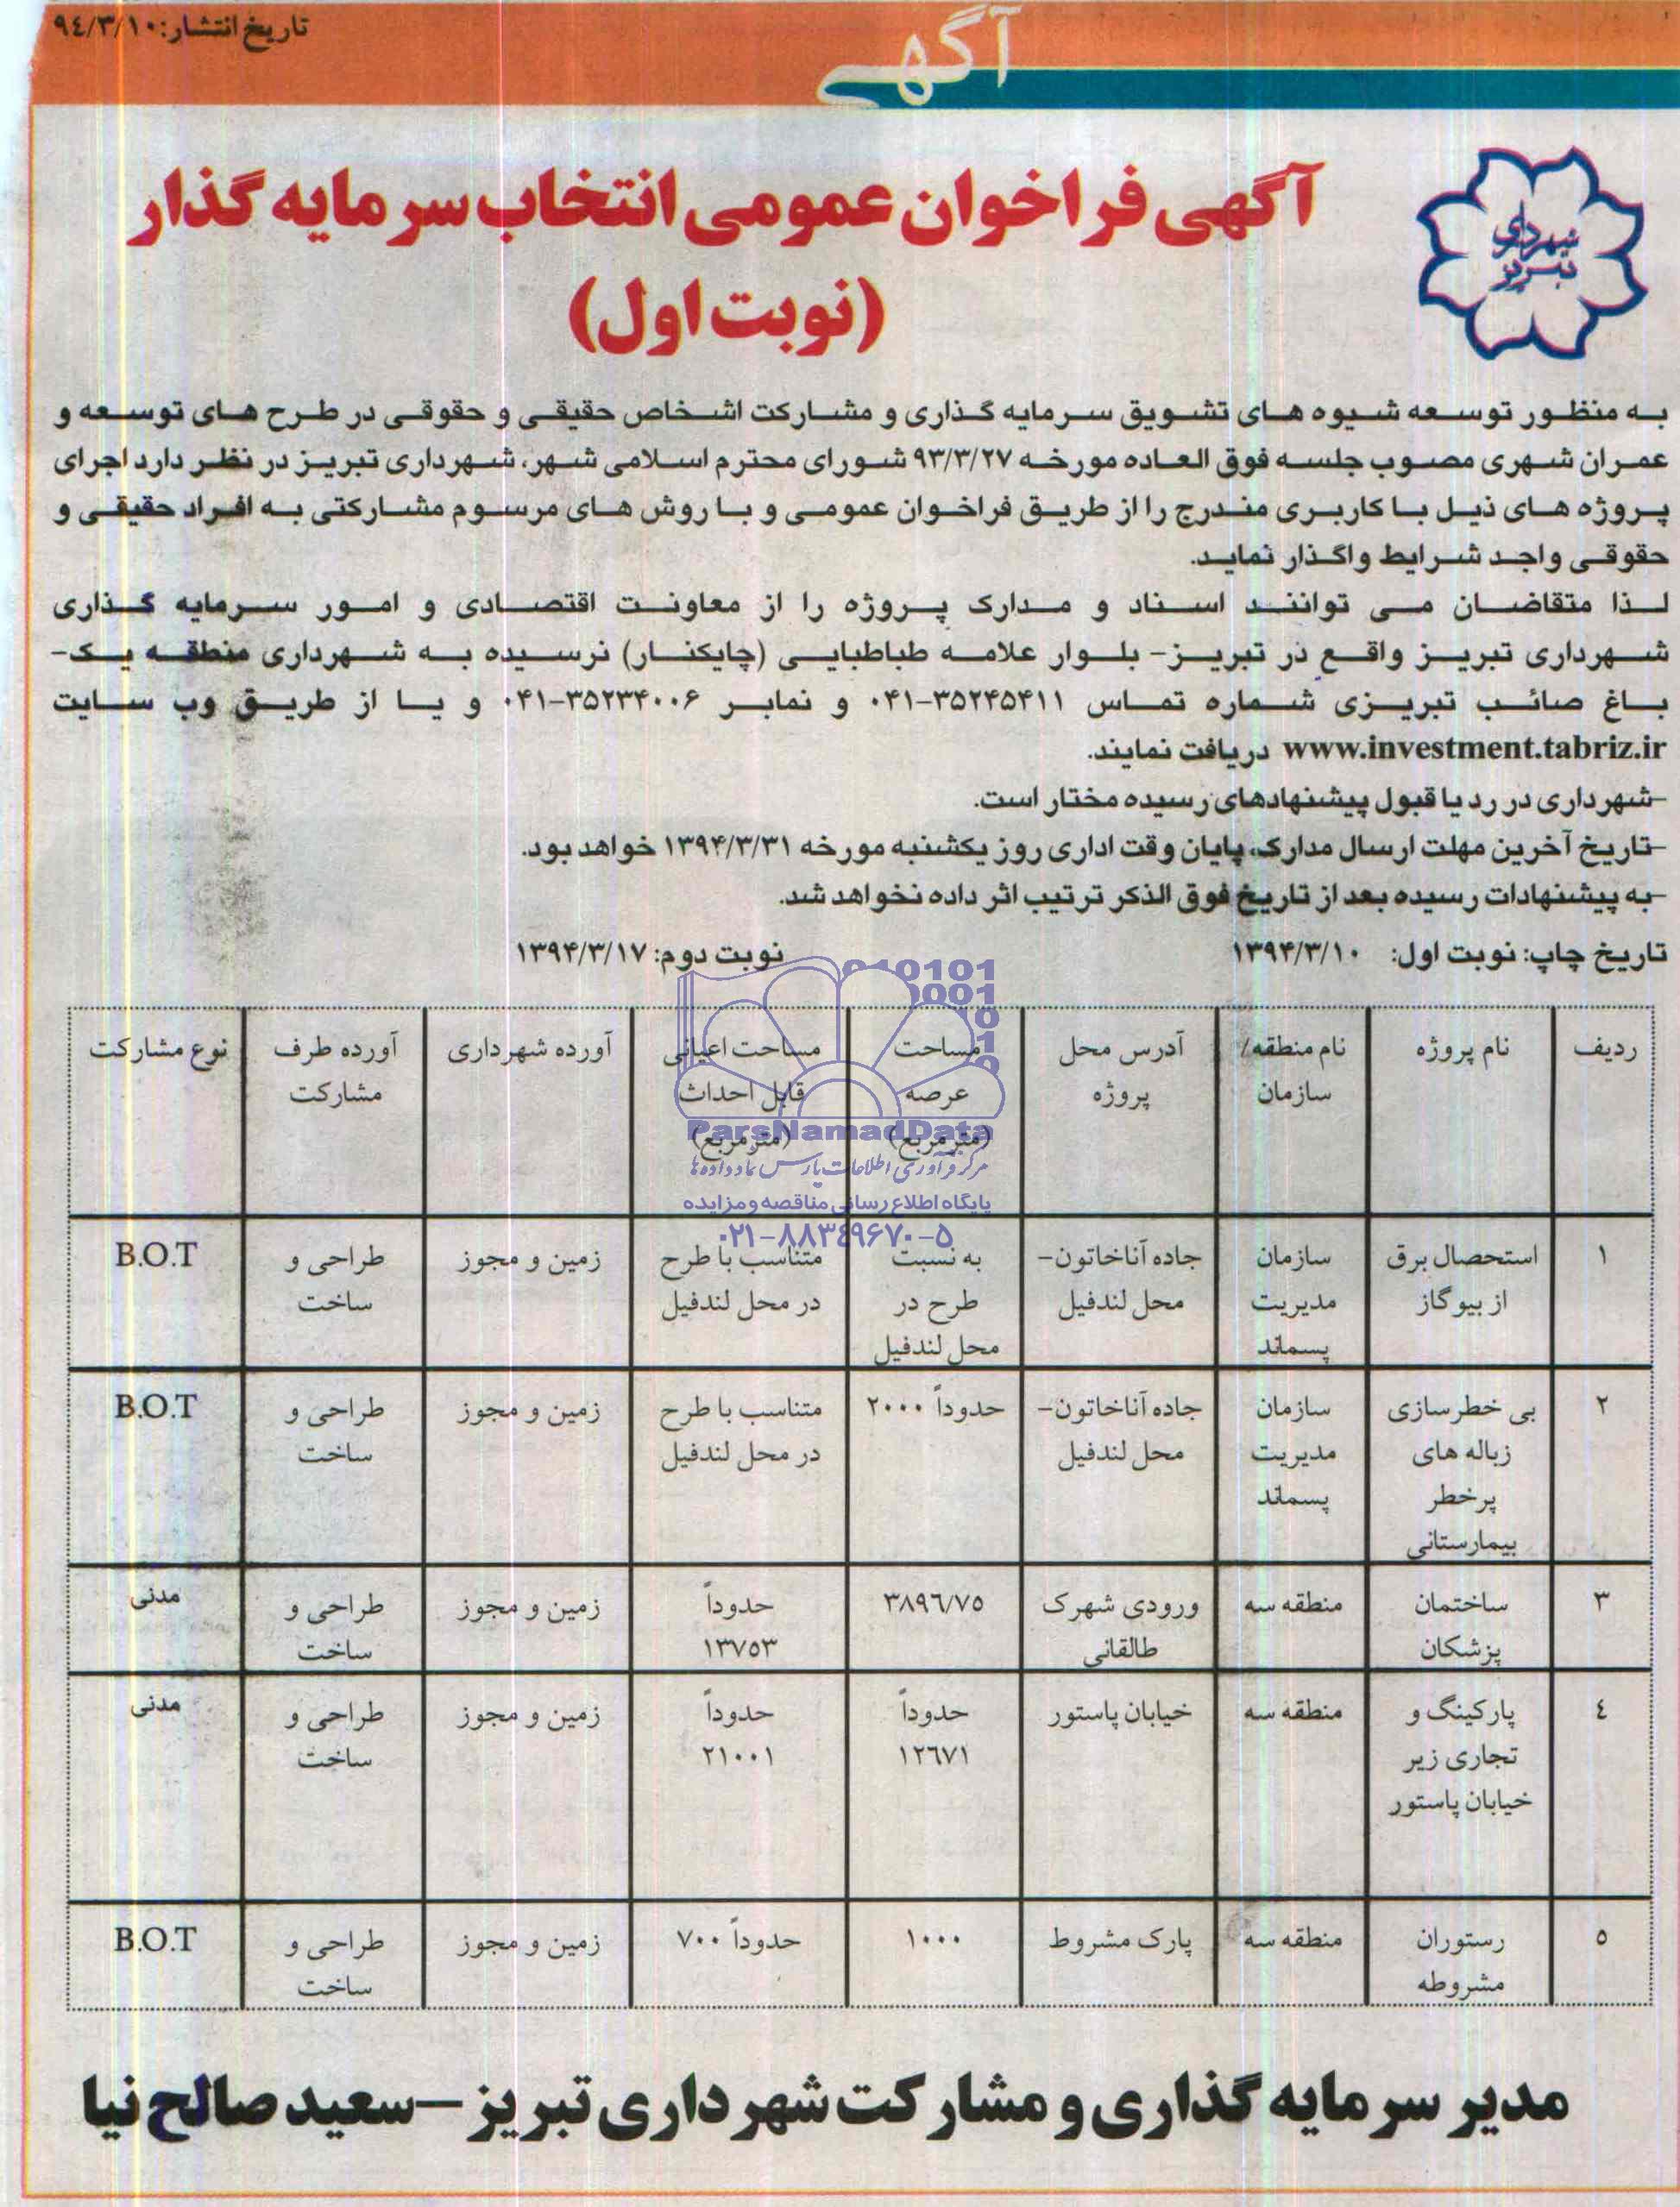 تاریخ انتشار: ۹٤/۳/۱۰
آگهی
شهرداری
تبریز
آگهی فراخوان عمومی انتخاب سرمایه گذار
(نوبت اول)
به منظور توسعه شیوه های تشویق سرمایه گذاری و مشارکت اشخاص حقیقی و حقوقی در طرح های توسعه و
عمران شهری مصوب جلسه فوق العاده مورخه ۹۳/۳/۲۷ شورای محترم اسلامی شهر، شهرداری تبریز در نظر دارد اجرای
پروژه های ذیل با کاربری مندرج را از طریق فراخوان عمومی و با روش های مرسوم مشارکتی به افراد حقیقی و
حقوقی واجد شرایط واگذار نماید.
لذا متقاضان می توانند اسناد و مدارک پروژه را از معاونت اقتصادی و امور سرمایه گذاری
شهرداری تبریز واقع در تبریز- بلوار علامه طباطبایی (چایکنار) نرسیده به شهرداری منطقه یک-
باغ صائب تبریزی شماره تماس ۳۵۲۴۵۴۱۱-۰۴۱ و نمابر ۳۵۲۳۴۰۰۶-۰۴۱ و یا از طریق وب سایت
www.investment.tabriz.ir دریافت نمایند.
-شهرداری در رد یا قبول پیشنهادهای رسیده مختار است.
-تاریخ آخرین مهلت ارسال مدارک، پایان وقت اداری روز یکشنبه مورخه ۱۳۹۴/۳/۳۱ خواهد بود.
-به پیشنهادات رسیده بعد از تاریخ فوق الذکر ترتیب اثر داده نخواهد شد.
تاریخ چاپ: نوبت اول: ۱۳۹۴/۳/۱۰ نوبت دوم: ۱۳۹۴/۳/۱۷
ردیف نام پروژه نام منطقه/ آدرس محل مساحت مساحت اعیانی آورده شهرداری آورده طرف نوع مشارکت
سازمان پروژه عرصه قابل احداث مشارکت
(مترمربع) (مترمربع)
ParsNamadData
مرکز فرآوری اطلاعات پارس نماد داده ها
پایگاه اطلاع رسانی مناقصه و مزایده
۰۲۱-۸۸۳٤۹۶۷۰-۵
۱ استحصال برق سازمان جاده آناخاتون- به نسبت متناسب با طرح زمین و مجوز طراحی و B.O.T
از بیوگاز مدیریت محل لندفیل طرح در در محل لندفیل ساخت
پسماند محل لندفیل
۲ بی خطرسازی سازمان جاده آناخاتون- حدوداً ۲۰۰۰ متناسب با طرح زمین و مجوز طراحی و B.O.T
زباله های مدیریت محل لندفیل در محل لندفیل ساخت
پرخطر پسماند
بیمارستانی
۳ ساختمان منطقه سه ورودی شهرک ۳۸۹٦/۷۵ حدوداً زمین و مجوز طراحی و مدنی
پزشکان طالقانی ۱۳۷۵۳ ساخت
٤ پارکینگ و منطقه سه خیابان پاستور حدوداً حدوداً زمین و مجوز طراحی و مدنی
تجاری زیر ۱۲٦۷۱ ۲۱۰۰۱ ساخت
خیابان پاستور
۵ رستوران منطقه سه پارک مشروط ۱۰۰۰ حدوداً ۷۰۰ زمین و مجوز طراحی و B.O.T
مشروطه ساخت
مدیر سرمایه گذاری و مشارکت شهرداری تبریز –سعید صالح نیا